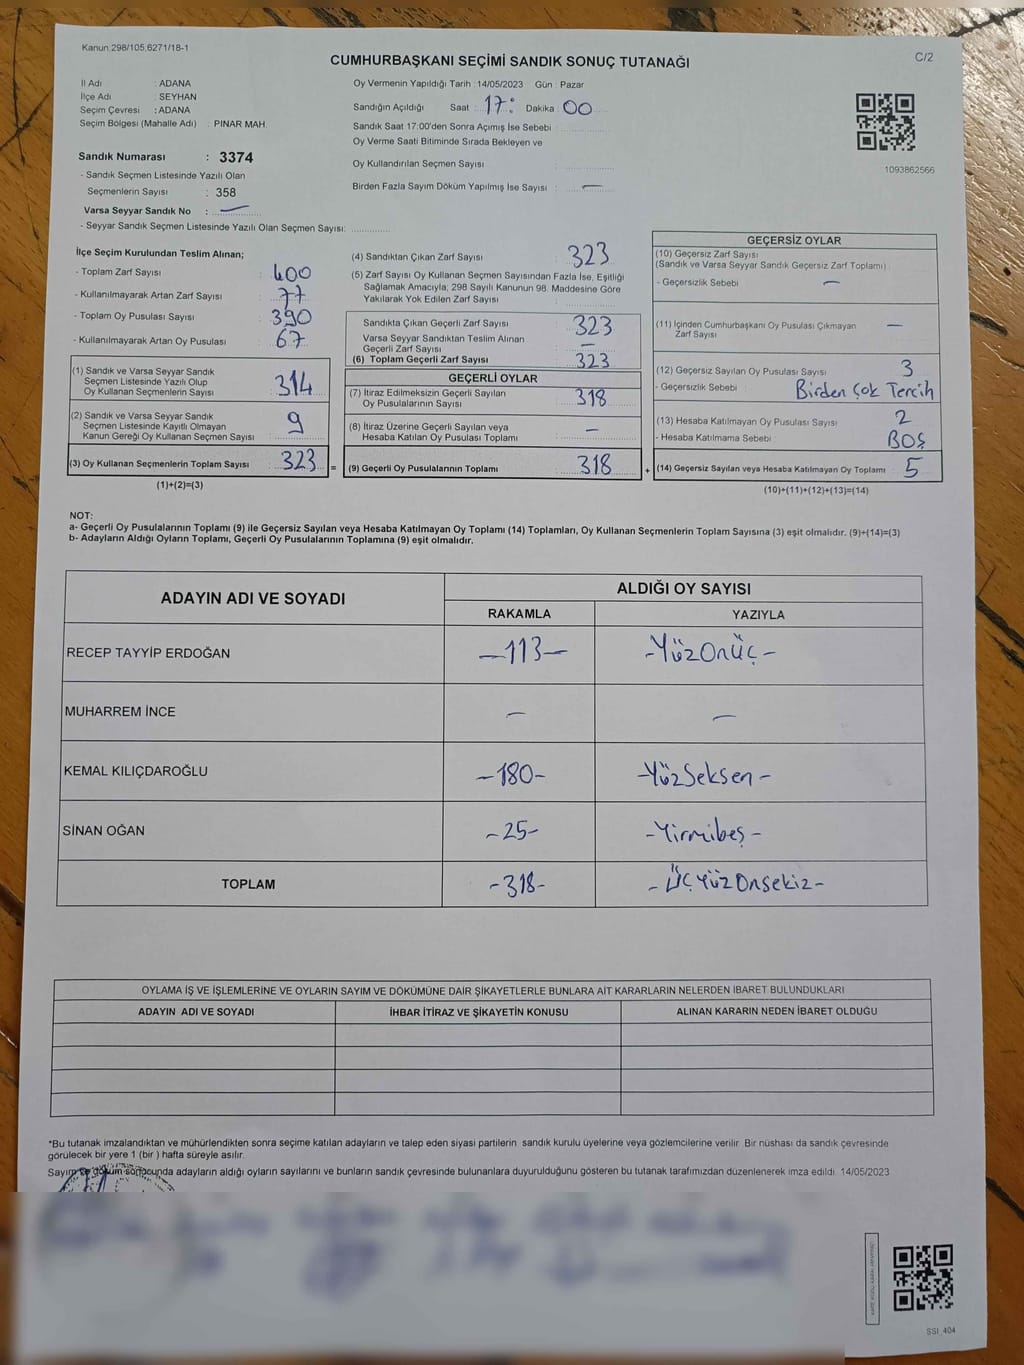 Kanun.298/105.6271/18-1
C/2
CUMHURBAŞKANI SEÇİMİ SANDIK SONUÇ TUTANAĞI
İl Adı : ADANA
İlçe Adı : SEYHAN
Seçim Çevresi : ADANA
Seçim Bölgesi (Mahalle Adı) : PINAR MAH.
Sandık Numarası : 3374
- Sandık Seçmen Listesinde Yazılı Olan
Seçmenlerin Sayısı : 358
Varsa Seyyar Sandık No : —
- Seyyar Sandık Seçmen Listesinde Yazılı Olan Seçmen Sayısı: ............
Oy Vermenin Yapıldığı Tarih : 14/05/2023 Gün : Pazar
Sandığın Açıldığı Saat : 17: Dakika : 00
Sandık Saat 17:00'den Sonra Açımış İse Sebebi :
Oy Verme Saati Bitiminde Sırada Bekleyen ve
Oy Kullandırılan Seçmen Sayısı :
Birden Fazla Sayım Döküm Yapılmış İse Sayısı : —
1093862566
İlçe Seçim Kurulundan Teslim Alınan;
- Toplam Zarf Sayısı : 400
- Kullanılmayarak Artan Zarf Sayısı : 77
- Toplam Oy Pusulası Sayısı : 390
- Kullanılmayarak Artan Oy Pusulası : 67
(1) Sandık ve Varsa Seyyar Sandık
Seçmen Listesinde Yazılı Olup
Oy Kullanan Seçmenlerin Sayısı : 314
(2) Sandık ve Varsa Seyyar Sandık
Seçmen Listesinde Kayıtlı Olmayan
Kanun Gereği Oy Kullanan Seçmen Sayısı : 9
(3) Oy Kullanan Seçmenlerin Toplam Sayısı : 323
(1)+(2)=(3)
(4) Sandıktan Çıkan Zarf Sayısı : 323
(5) Zarf Sayısı Oy Kullanan Seçmen Sayısından Fazla İse, Eşitliği
Sağlamak Amacıyla; 298 Sayılı Kanunun 98. Maddesine Göre
Yakılarak Yok Edilen Zarf Sayısı :
Sandıkta Çıkan Geçerli Zarf Sayısı : 323
Varsa Seyyar Sandıktan Teslim Alınan
Geçerli Zarf Sayısı : —
(6) Toplam Geçerli Zarf Sayısı : 323
GEÇERLİ OYLAR
(7) İtiraz Edilmeksizin Geçerli Sayılan
Oy Pusulalarının Sayısı : 318
(8) İtiraz Üzerine Geçerli Sayılan veya
Hesaba Katılan Oy Pusulası Toplamı : —
= (9) Geçerli Oy Pusulalarının Toplamı : 318
GEÇERSİZ OYLAR
(10) Geçersiz Zarf Sayısı
(Sandık ve Varsa Seyyar Sandık Geçersiz Zarf Toplamı) :
- Geçersizlik Sebebi : —
(11) İçinden Cumhurbaşkanı Oy Pusulası Çıkmayan
Zarf Sayısı : —
(12) Geçersiz Sayılan Oy Pusulası Sayısı : 3
- Geçersizlik Sebebi : Birden Çok Tercih
(13) Hesaba Katılmayan Oy Pusulası Sayısı : 2
- Hesaba Katılmama Sebebi : BOŞ
+ (14) Geçersiz Sayılan veya Hesaba Katılmayan Oy Toplamı : 5
(10)+(11)+(12)+(13)=(14)
NOT:
a- Geçerli Oy Pusulalarının Toplamı (9) ile Geçersiz Sayılan veya Hesaba Katılmayan Oy Toplamı (14) Toplamları, Oy Kullanan Seçmenlerin Toplam Sayısına (3) eşit olmalıdır. (9)+(14)=(3)
b- Adayların Aldığı Oyların Toplamı, Geçerli Oy Pusulalarının Toplamına (9) eşit olmalıdır.
ADAYIN ADI VE SOYADI
ALDIĞI OY SAYISI
RAKAMLA YAZIYLA
RECEP TAYYİP ERDOĞAN —113— -YüzOnüç-
MUHARREM İNCE — —
KEMAL KILIÇDAROĞLU -180- -YüzSeksen-
SİNAN OĞAN -25- -Yirmibeş-
TOPLAM -318- -ÜçYüzOnsekiz-
OYLAMA İŞ VE İŞLEMLERİNE VE OYLARIN SAYIM VE DÖKÜMÜNE DAİR ŞİKAYETLERLE BUNLARA AİT KARARLARIN NELERDEN İBARET BULUNDUKLARI
ADAYIN ADI VE SOYADI İHBAR İTİRAZ VE ŞİKAYETİN KONUSU ALINAN KARARIN NEDEN İBARET OLDUĞU
*Bu tutanak imzalandıktan ve mühürlendikten sonra seçime katılan adayların ve talep eden siyasi partilerin sandık kurulu üyelerine veya gözlemcilerine verilir. Bir nüshası da sandık çevresinde
görülecek bir yere 1 (bir ) hafta süreyle asılır.
Sayım ve döküm sonucunda adayların aldığı oyların sayılarını ve bunların sandık çevresinde bulunanlara duyurulduğunu gösteren bu tutanak tarafımızdan düzenlenerek imza edildi. 14/05/2023
SSI_404